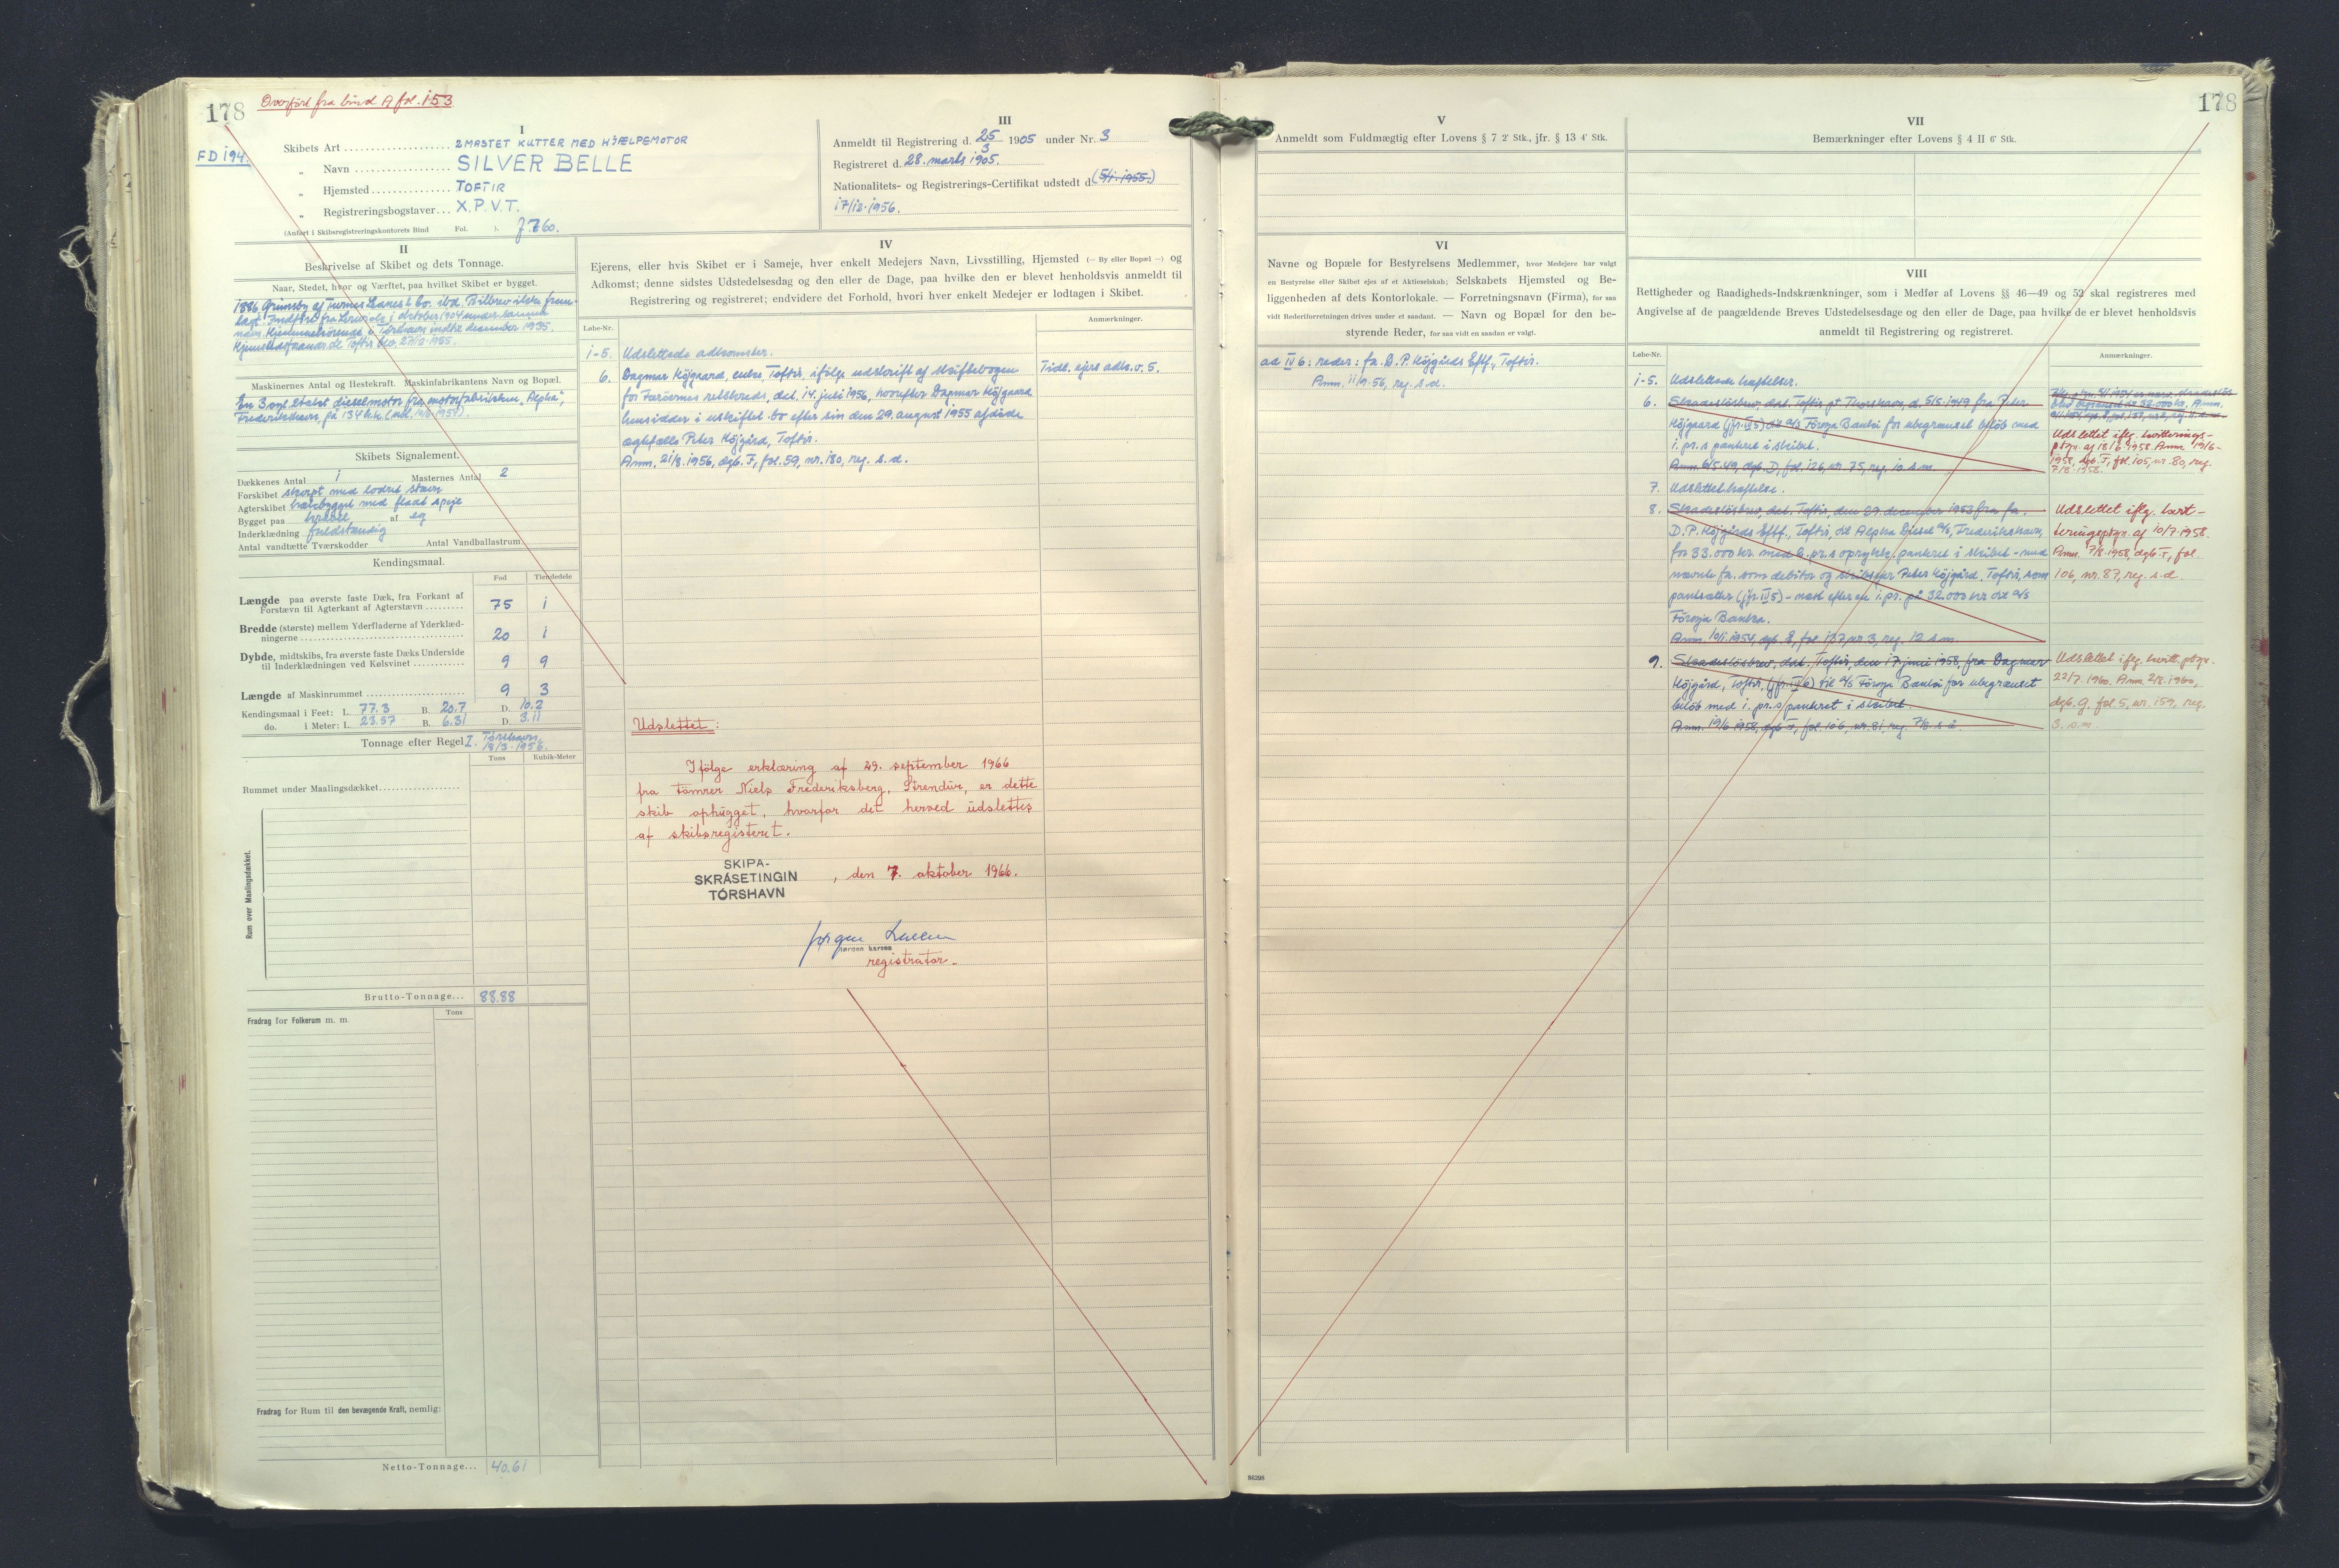 178
Overført fra bind A fol. 153
FD 194.
I
Skibets Art 2MASTET KUTTER MED HJÆLPEMOTOR
„ Navn SILVER BELLE
„ Hjemsted TOFTIR
„ Registreringsbogstaver X.P.V.T.
(Anført i Skibsregistreringskontorets Bind Fol. ).
III
Anmeldt til Registrering d. 25/3 1905 under Nr. 3
Registreret d. 28. marts 1905.
Nationalitets- og Registrerings-Certifikat udstedt d. (5/1.1955.)
17/12.1956.
II
Beskrivelse af Skibet og dets Tonnage.
Naar, Stedet, hvor og Værftet, paa hvilket Skibet er bygget.
1886 Grimsby af
i oktober 1904 under samme
navn. Hjemmehørende i Tórshavn indtil december 1935.
Hjemstedsforandr. til Toftir
Maskinernes Antal og Hestekraft. Maskinfabrikantens Navn og Bopæl.
En 3 cyl. 2takts dieselmotor fra motorfabrikken „Alpha",
Frederikshavn, på 134 hk.
Skibets Signalement.
Dækkenes Antal 1 Masternes Antal 2
Forskibet skarpt med lodret stævn
Agterskibet hækbygget med fladt spejl
Bygget paa kravel af eg
Inderklædning fuldstændig
Antal vandtætte Tværskodder Antal Vandballastrum
Kendingsmaal.
Fod Tiendedele
Længde paa øverste faste Dæk, fra Forkant af
Forstævn til Agterkant af Agterstævn 75 1
Bredde (største) mellem Yderfladerne af Yderklæd-
ningerne 20 1
Dybde, midtskibs, fra øverste faste Dæks Underside
til Inderklædningen ved Kølsvinet 9 9
Længde af Maskinrummet 9 3
Kendingsmaal i Feet: L. 77.3 B. 20.7 D. 10.2
do. i Meter: L. 23.57 B. 6.31 D. 3.11
Tonnage efter Regel I. Tórshavn,
1956.
Tons Kubik-Meter
Rummet under Maalingsdækket
Rum over Maalingsdækket.
Brutto-Tonnage... 88.88
Fradrag for Folkerum m. m. Tons
Fradrag for Rum til den bevægende Kraft, nemlig:
Netto-Tonnage... 40.61
IV
Ejerens, eller hvis Skibet er i Sameje, hver enkelt Medejers Navn, Livsstilling, Hjemsted (— By eller Bopæl —) og
Adkomst; denne sidstes Udstedelsesdag og den eller de Dage, paa hvilke den er blevet henholdsvis anmeldt til
Registrering og registreret; endvidere det Forhold, hvori hver enkelt Medejer er lodtagen i Skibet.
Løbe-Nr. Anmærkninger.
1-5. Udslettede adkomster.
6. Dagmar Højgaard, enke, Toftir, ifølge udskrift af skiftebogen Tidl. ejers adk. v. 5.
for Færøernes retskreds, dat. 14. juli 1956, hvorefter Dagmar Højgaard
hensidder i uskiftet bo efter sin den 29. august 1955 afdøde
ægtefælle Peter Højgård, Toftir.
Anm. 21/8.1956, dgb. F, fol. 59, nr. 180, reg. s. d.
Udslettet:
Ifölge erklæring af 29. september 1966
fra tömrer Niels Frederiksberg, Strendur, er dette
skib ophugget, hvorfor det herved udslettes
af skibsregisteret.
SKIPA-
SKRÁSETINGIN
TÓRSHAVN
, den 7. oktober 1966.
registrator.
178
V
Anmeldt som Fuldmægtig efter Lovens § 7 2' Stk., jfr. § 13 4' Stk.
VI
Navne og Bopæle for Bestyrelsens Medlemmer, hvor Medejere har valgt
en Bestyrelse eller Skibet ejes af et Aktieselskab; Selskabets Hjemsted og Be-
liggenheden af dets Kontorlokale. — Forretningsnavn (Firma), for saa
vidt Rederiforretningen drives under et saadant. — Navn og Bopæl for den be-
styrende Reder, for saa vidt en saadan er valgt.
ad IV 6: reder: fa. D. P. Højgårds Eftf., Toftir.
Anm. 11/9.56, reg. s. d.
VII
Bemærkninger efter Lovens § 4 II 6' Stk.
VIII
Rettigheder og Raadigheds-Indskrænkninger, som i Medfør af Lovens §§ 46—49 og 52 skal registreres med
Angivelse af de paagældende Breves Udstedelsesdag og den eller de Dage, paa hvilke de er blevet henholdsvis
anmeldt til Registrering og registreret.
Løbe-Nr. Anmærkninger.
1-5. Udslettede hæftelser.
6. Skadesløsbrev, dat. Toftir pt. Thorshavn, d. 5/5.1949 fra Peter
Højgaard (jfr. IV 5) til a/s Föroya Banki for ubegrænset beløb med
1. pr.s panteret i skibet.
Anm. 6/5.49, dgb. D, fol. 126, nr. 75, reg. 10 s.m.
Udslettet iflg. kvitterings-
ptgn. af 18/6.1958. Anm. 19/6-
1958, dgb. F, fol. 105, nr. 80, reg.
7/8.1958.
7. Udslettet hæftelse.
8. Skadesløsbrev, dat. Toftir, den 29. december 1953 fra fa.
D. P. Højgårds Eftf., Toftir, til Alpha Diesel a/s, Frederikshavn,
for 33.000 kr. med 2. pr.s oprykk. panteret i skibet - med
nævnte fa. som debitor og skibsejer Peter Højgård, Toftir, som
pantsætter (jfr. IV 5) - næst efter en 1. pr. på 32.000 kr til a/s
Föroya Banka.
Anm. 10/1.1954, dgb. E, fol. 137, nr. 3, reg. 12 s.m.
Udslettet iflg. kvit-
teringsptgn. af 10/7.1958.
Anm. 7/8.1958, dgb. F, fol.
106, nr. 87, reg. s.d.
9. Skadesløsbrev, dat. Toftir, den 17. juni 1958, fra Dagmar
Højgård, Toftir, (jfr. IV 6) til a/s Föroya Banki for ubegrænset
beløb med 1. pr.s panteret i skibet.
Anm. 19/6 1958, dgb. F, fol. 106, nr. 81, reg. 7/8. s.å.
Udslettet iflg. kvitt. ptgn.
22/7. 1960. Anm. 2/8.1960,
dgb. G, fol. 5, nr. 159, reg.
3. s.m.